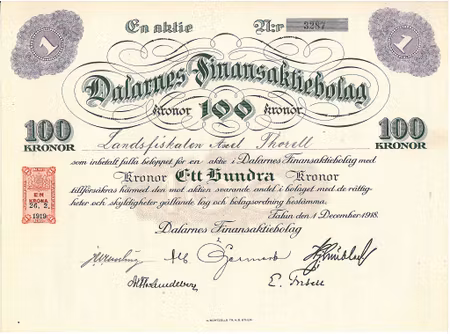 En aktie Nr 3287
1 1
Dalarnes Finansaktiebolag
kronor 100 kronor
100 KRONOR 100 KRONOR
Landsfiskalen Axel Thorell
som inbetalt fulla beloppet för en aktie i Dalarnes Finansaktiebolag med
Kronor Ett Hundra Kronor
tillförsäkras härmed den mot aktien svarande andel i bolaget med de rättig-
heter och skyldigheter gällande lag och bolagsordning bestämma.
EN
KRONA
26. 2.
1919
Falun den 1 December 1918.
Dalarnes Finansaktiebolag